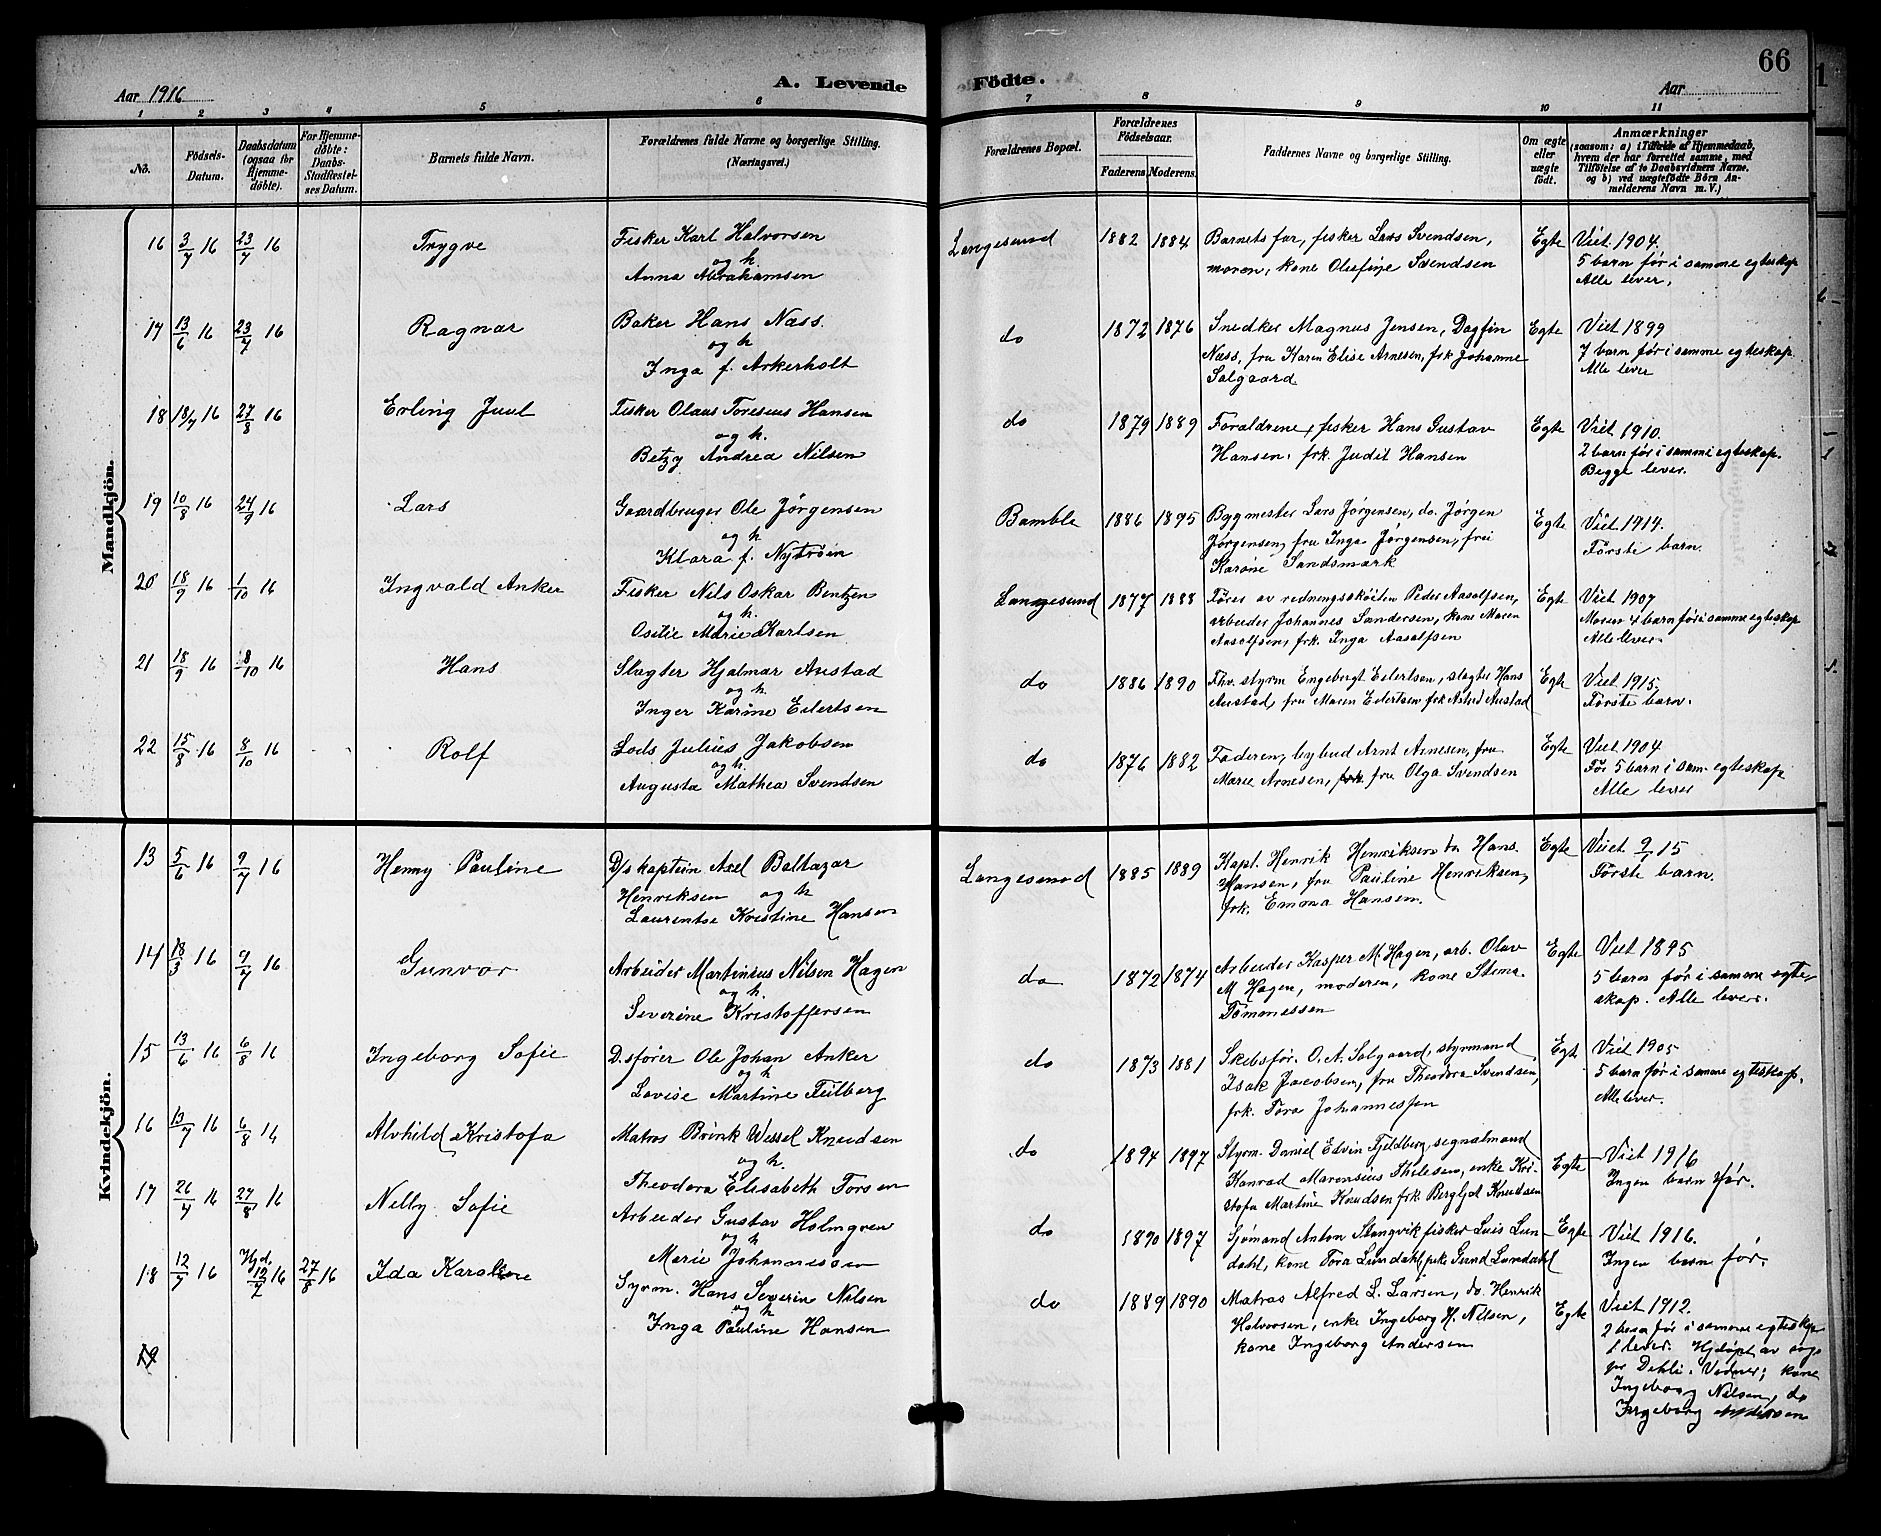 66
Aar 1916
A. Levende Födte.
Aar
1 2 3 4 5 6 7 8 9 10 11
No.
Födsels-Datum.
Daabsdatum (ogsaa for Hjemme-döbte).
For Hjemme-döbte: Daabs-Stadfæstelses Datum.
Barnets fulde Navn.
Forældrenes fulde Navne og borgerlige Stilling. (Næringsvei.)
Forældrenes Bopæl.
Forældrenes Födselsaar.
Faderens. Moderens.
Faddernes Navne og borgerlige Stilling.
Om ægte eller uægte födt.
Anmærkninger
(saasom: a) i Tilfælde af Hjemmedaab, hvem der har forrettet samme, med Tilföielse af to Daabsvidners Navne. og b) ved uægtefödte Börn Anmelderens Navn m. V.)
Mandkjön.
16 3/7 16 23/7 16 Trygve Fisker Karl Halvorsen
og h.
Anna Abrahamsen
Langesund 1882 1884 Barnets far, fisker Lars Svendsen,
moren, kone Olefine Svendsen
Egte Viet 1904.
5 barn før i samme egteskap
Alle lever.
17 13/6 16 23/7 16 Ragnar Baker Hans Næss.
og h
Inga f. Arkerholt
do 1872 1876 Snedker Magnus Jensen, Dagfin
Næss, fru Karen Elise Arnesen, frk Johanne
Salgaard
Egte Viet 1899
7 barn før i samme egteskap.
Alle lever
18 18/7 16 27/8 16 Erling Juul Fisker Olaus Toresius Hansen
og h.
Betzy Andrea Nilsen
do 1879 1889 Foraldrene, fisker Hans Gustav
Hansen, frk. Judit Hansen
Egte Viet 1910.
2 barn før i samme egteskap.
Begge lever.
19 10/8 16 24/9 16 Lars Gaardbruger Ole Jørgensen
og h
Klara f. Nyström
Bamble 1886 1895 Bygmester Lars Jørgensen, do. Jørgen
Jørgensen, fru Inga Jørgensen, frøi
Karone Sandsmark
Egte Viet 1914.
Første barn.
20 18/9 16 1/10 16 Ingvald Anker Fisker Nils Oskar Bentzen
og h.
Ositie Marie Karlsen
Langesund 1877 1888 Fører av redningsskøiten Peder Aasolfsen,
arbeider Johannes Sandersen, kone Maren
Aasolfsen, frk. Inga Aasolfsen
Egte Viet 1907
Moren 4 barn før i samme egteskap
Alle lever.
21 18/9 16 8/10 16 Hans Slagter Hjalmar Austad
og h
Inger Karine Eilertsen
do 1886 1890 Fhv. styrm Engebregt Eilertsen, slagter Hans
Austad, fru Maren Eilertsen frk Astrid Austad
Egte Viet 1915,
Første barn.
22 15/8 16 8/10 16 Rolf Lods Julius Jakobsen
og h.
Augusta Mathea Svendsen
do 1876 1882 Faderen, bybud Arnt Arnesen, fru
Marie Arnesen, fru Olga Svendsen
Egte Viet 1904
Før 5 barn i sam egteskap
Alle lever
Kvindekjön.
13 5/6 16 9/7 16 Henny Pauline D/s kaptein Axel Baltazar
Henriksen og h
Laurentse Kristine Hansen
Langesund 1885 1889 Kapt. Henrik Henriksen do Hans.
Hansen, fru Pauline Henriksen,
frk. Emma Hansen.
Egte Viet 9/1 15
Første barn.
14 18/3 16 9/7 16 Gunvor Arbeider Martinius Nilsen Hagen
og h.
Severine Kristoffersen
do 1872 1874 Arbeider Kasper M. Hagen, arb. Olav
M Hagen, moderen, kone Stina
Tømmessen
Egte Viet 1895
5 barn før i samme egte
skap. Alle lever.
15 13/6 16 6/8 16 Ingeborg Sofie D.sfører Ole Johan Anker
og h
Lovise Martine Feilberg
do 1873 1881 Skibsfør. O. A. Salgaard, styrmand
Isak Jacobsen, fru Theodora Svendsen,
frk. Tora Johannessen
Egte Viet 1905
5 barn før i samme egteskap.
Alle lever.
16 13/7 16 6/8 16 Alvhild Kristofa Matros Brink Wessel Knudsen
og h.
Theodora Elisabeth Torsen
do 1894 1897 Styrm. Daniel Edvin Fjeldberg, signalmand
Konrad Marensius Thilesen, enke Kri-
stofa Martine Knudsen frk Bergljot Knudsen
Egte Viet 1916
Ingen barn før.
17 26/7 16 27/8 16 Nelly Sofie Arbeider Gustav Holmgren
og h
Marie Johannessen
do 1890 1897 Sjømand Anton Stangvik fisker Luis Lun-
dahl, kone Tora Lundahl, frk Gund Lundahl
Egte Viet 1916.
Ingen barn før.
18 12/7 16 Hjd. 12/7 16 27/8 16 Ida Karoline Syrm. Hans Severin Nilsen
og h
Inga Pauline Hansen
do 1889 1890 Matros Alfred L. Larsen, do. Henrik
Halvorsen, enke Ingeborg H. Nilsen,
kone Ingeborg Andersen
Egte Viet 1912.
2 barn før i samme egteskap
1 lever. Hjdøpt av sogn
pr Dehli. Vidner; kone
Ingeborg Nilsen, do
Ingeborg Andersen
19